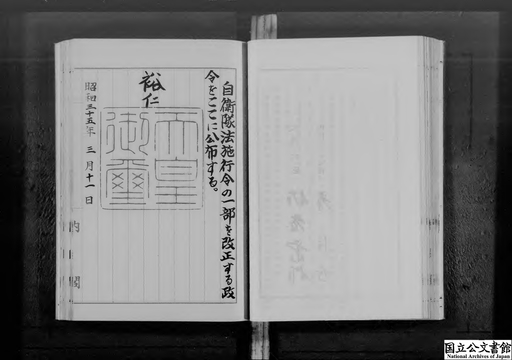 自衛隊法施行令の一部を改正する政
令をここに公布する。
裕仁
天皇
御璽
昭和三十五年 三月十一日
内閣
国立公文書館
National Archives of Japan